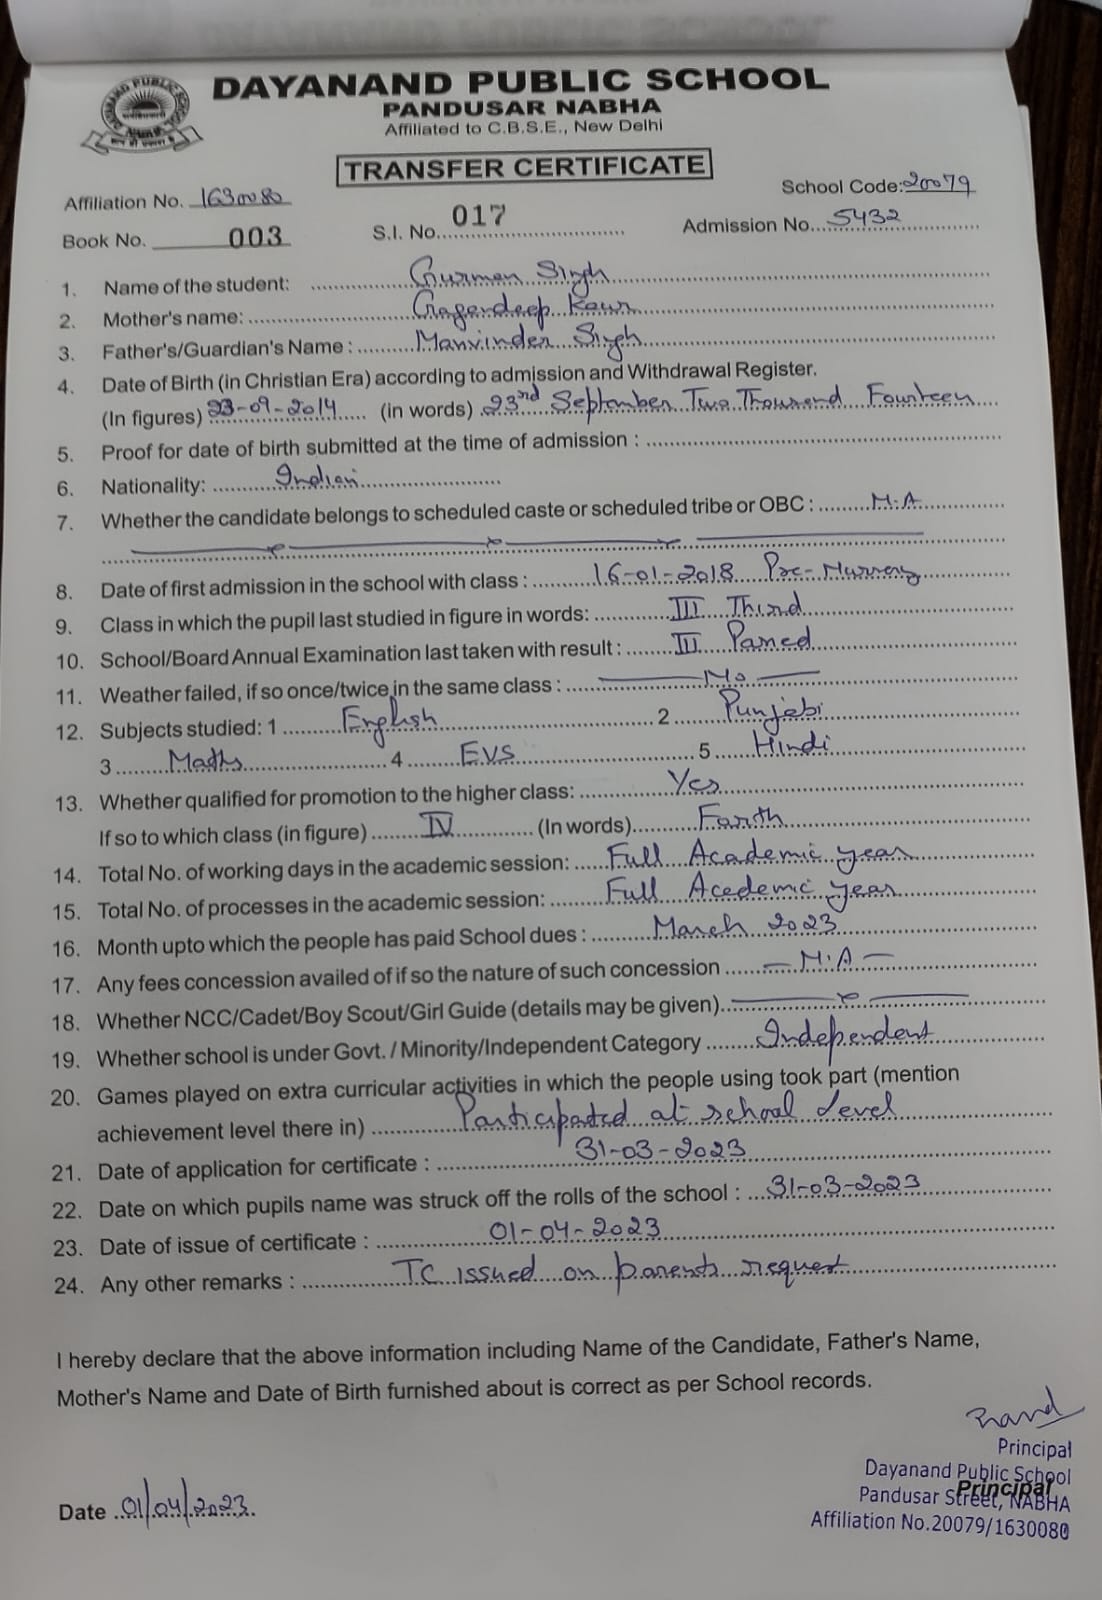 DAYANAND PUBLIC SCHOOL
PANDUSAR NABHA
Affiliated to C.B.S.E., New Delhi
TRANSFER CERTIFICATE
Affiliation No. 1630080 School Code: 20079
Book No. 003 S.I. No. 017 Admission No. 5432
1. Name of the student: Gurman Singh
2. Mother's name: Gagandeep Kaur
3. Father's/Guardian's Name : Manvinder Singh
4. Date of Birth (in Christian Era) according to admission and Withdrawal Register.
(In figures) 23-09-2014 (in words) 23rd September Two Thousand Fourteen
5. Proof for date of birth submitted at the time of admission :
6. Nationality: Indian
7. Whether the candidate belongs to scheduled caste or scheduled tribe or OBC : N.A
8. Date of first admission in the school with class : 16-01-2018 Pre-Nursery
9. Class in which the pupil last studied in figure in words: III Third
10. School/Board Annual Examination last taken with result : III Passed
11. Weather failed, if so once/twice in the same class : No
12. Subjects studied: 1 English 2 Punjabi
3 Maths 4 EVS 5 Hindi
13. Whether qualified for promotion to the higher class: Yes
If so to which class (in figure) IV (In words) Forth
14. Total No. of working days in the academic session: Full Academic year
15. Total No. of processes in the academic session: Full Academic year
16. Month upto which the people has paid School dues : March 2023
17. Any fees concession availed of if so the nature of such concession - N.A -
18. Whether NCC/Cadet/Boy Scout/Girl Guide (details may be given)
19. Whether school is under Govt. / Minority/Independent Category Independent
20. Games played on extra curricular activities in which the people using took part (mention
achievement level there in) Participated at school level
21. Date of application for certificate : 31-03-2023
22. Date on which pupils name was struck off the rolls of the school : 31-03-2023
23. Date of issue of certificate : 01-04-2023
24. Any other remarks : TC issued on parents request
I hereby declare that the above information including Name of the Candidate, Father's Name,
Mother's Name and Date of Birth furnished about is correct as per School records.
Principal
Dayanand Public School
Principal
Pandusar Street, NABHA
Date 01/04/2023
Affiliation No.20079/1630080